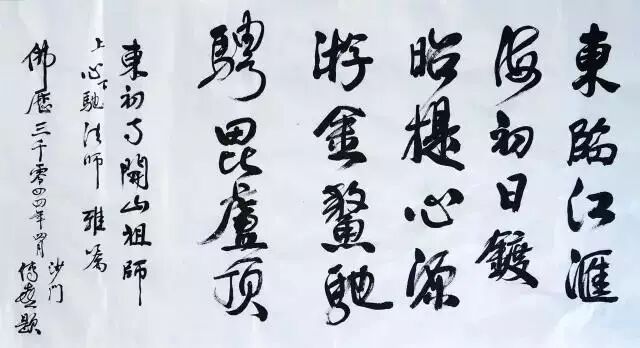 東臨江滙
海初日鍍
昭提心源
游金鰲馳
騁毘盧頂
東初寺開山祖師
上心下馳法師雅属
佛歷三千零四四年四月
沙门
傳喜题